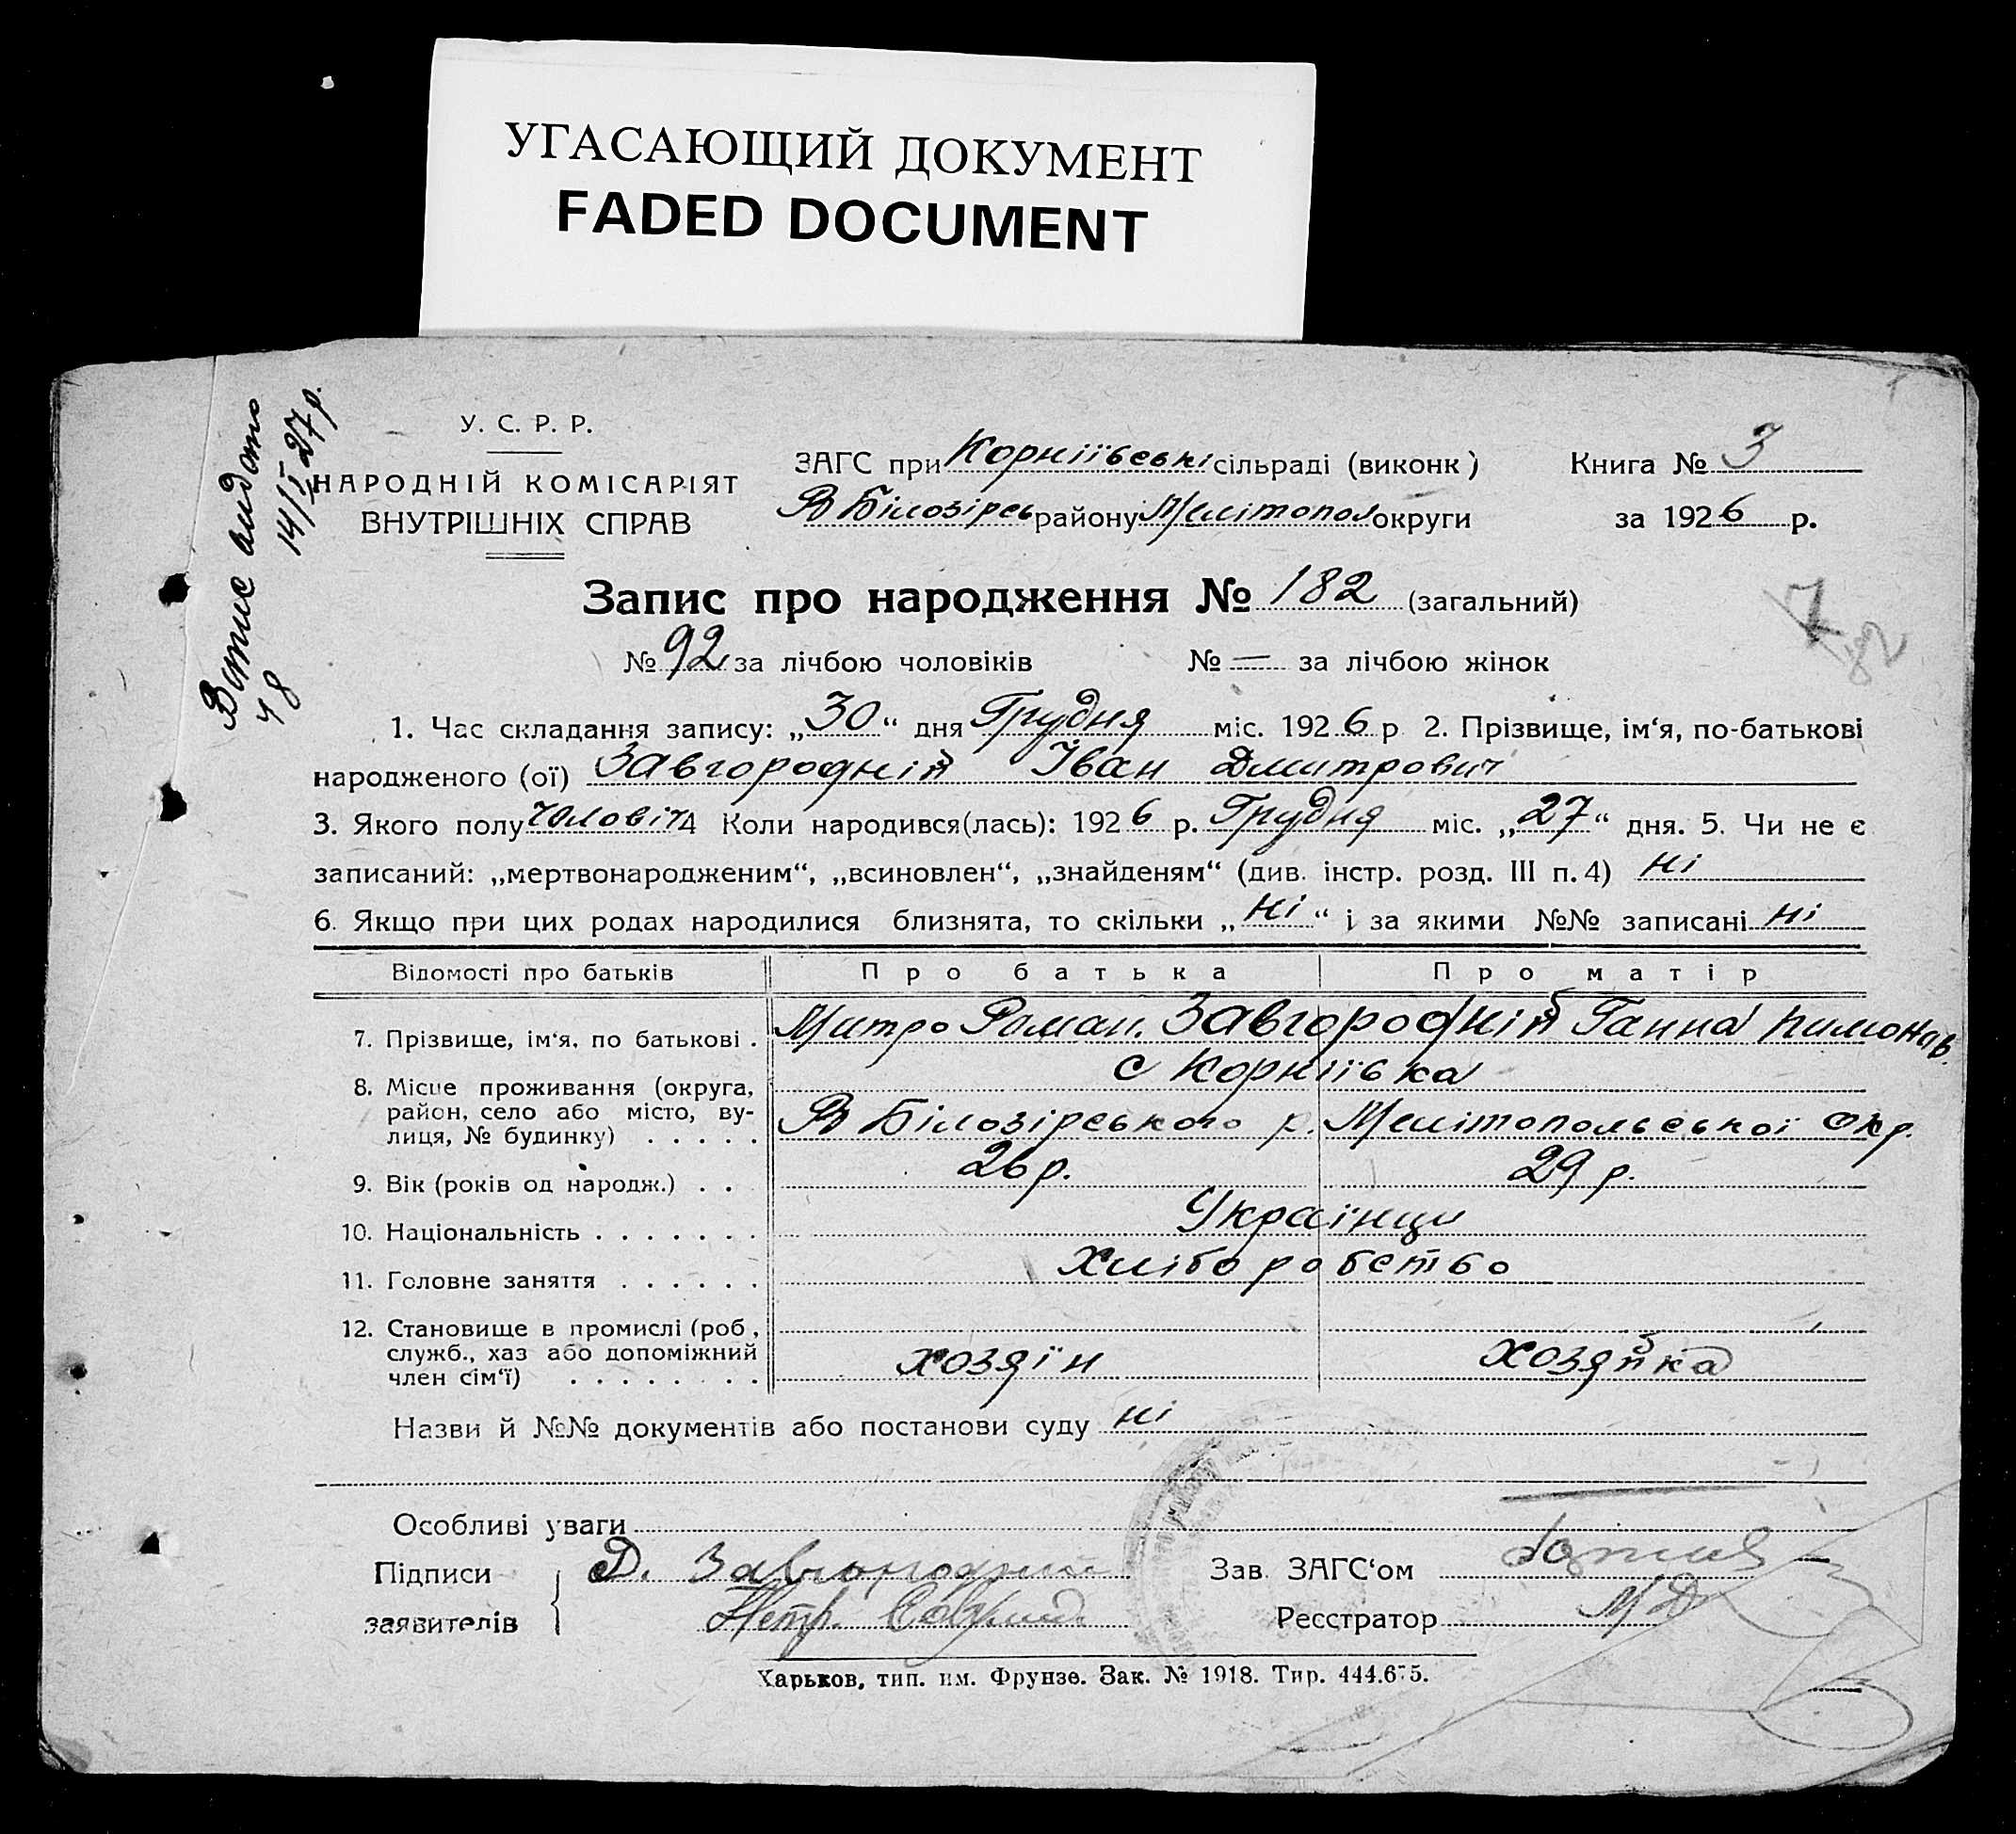 УГАСАЮЩИЙ ДОКУМЕНТ
FADED DOCUMENT
Витис видано
14/I 27 р.
ч 8
У. С. Р. Р.
НАРОДНІЙ КОМІСАРІЯТ
ВНУТРІШНІХ СПРАВ
ЗАГС при Корніївські сільраді (виконк)
В Білозірсь району Мелітопол округи
Книга № 3
за 1926 р.
Запис про народження № 182 (загальний)
№ 92 за лічбою чоловіків № — за лічбою жінок
1. Час складання запису: „30“ дня Грудня міс. 1926 р 2. Прізвище, ім‘я, по-батькові
народженого (ої) Завгородній Іван Дмитрович
3. Якого полу чоловіч 4 Коли народився(лась): 1926 р. Грудня міс. „27“ дня. 5. Чи не є
записаний: „мертвонародженим“, „всиновлен“, „знайденям“ (див. інстр. розд. III п. 4) ні
6. Якщо при цих родах народилися близнята, то скільки „ні“ і за якими №№ записані ні
Відомості про батьків Про батька Про матір
7. Прізвище, ім‘я, по батькові . Митро Роман. Завгородній Ганна Пимонов.
с Корніївка
8. Місце проживання (округа, район, село або місто, ву-
лиця, № будинку) . . . . . В Білозірського р. Мелітопольської окр.
9. Вік (років од народж.) . . 26 р. 29 р.
10. Національність . . . . . . . Українци
11. Головне заняття . . . . . . Хліборобство
12. Становище в промислі (роб.,
служб., хаз або допоміжний
член сім‘ї) . . . . . . . . хозяїн хозяйка
Назви й №№ документів або постанови суду ні
Особливі уваги
Підписи Д. Завгородний Зав. ЗАГС‘ом
заявителів Петр. Реєстратор
Харьков, тип. им. Фрунзе. Зак. № 1918. Тир. 444.675.